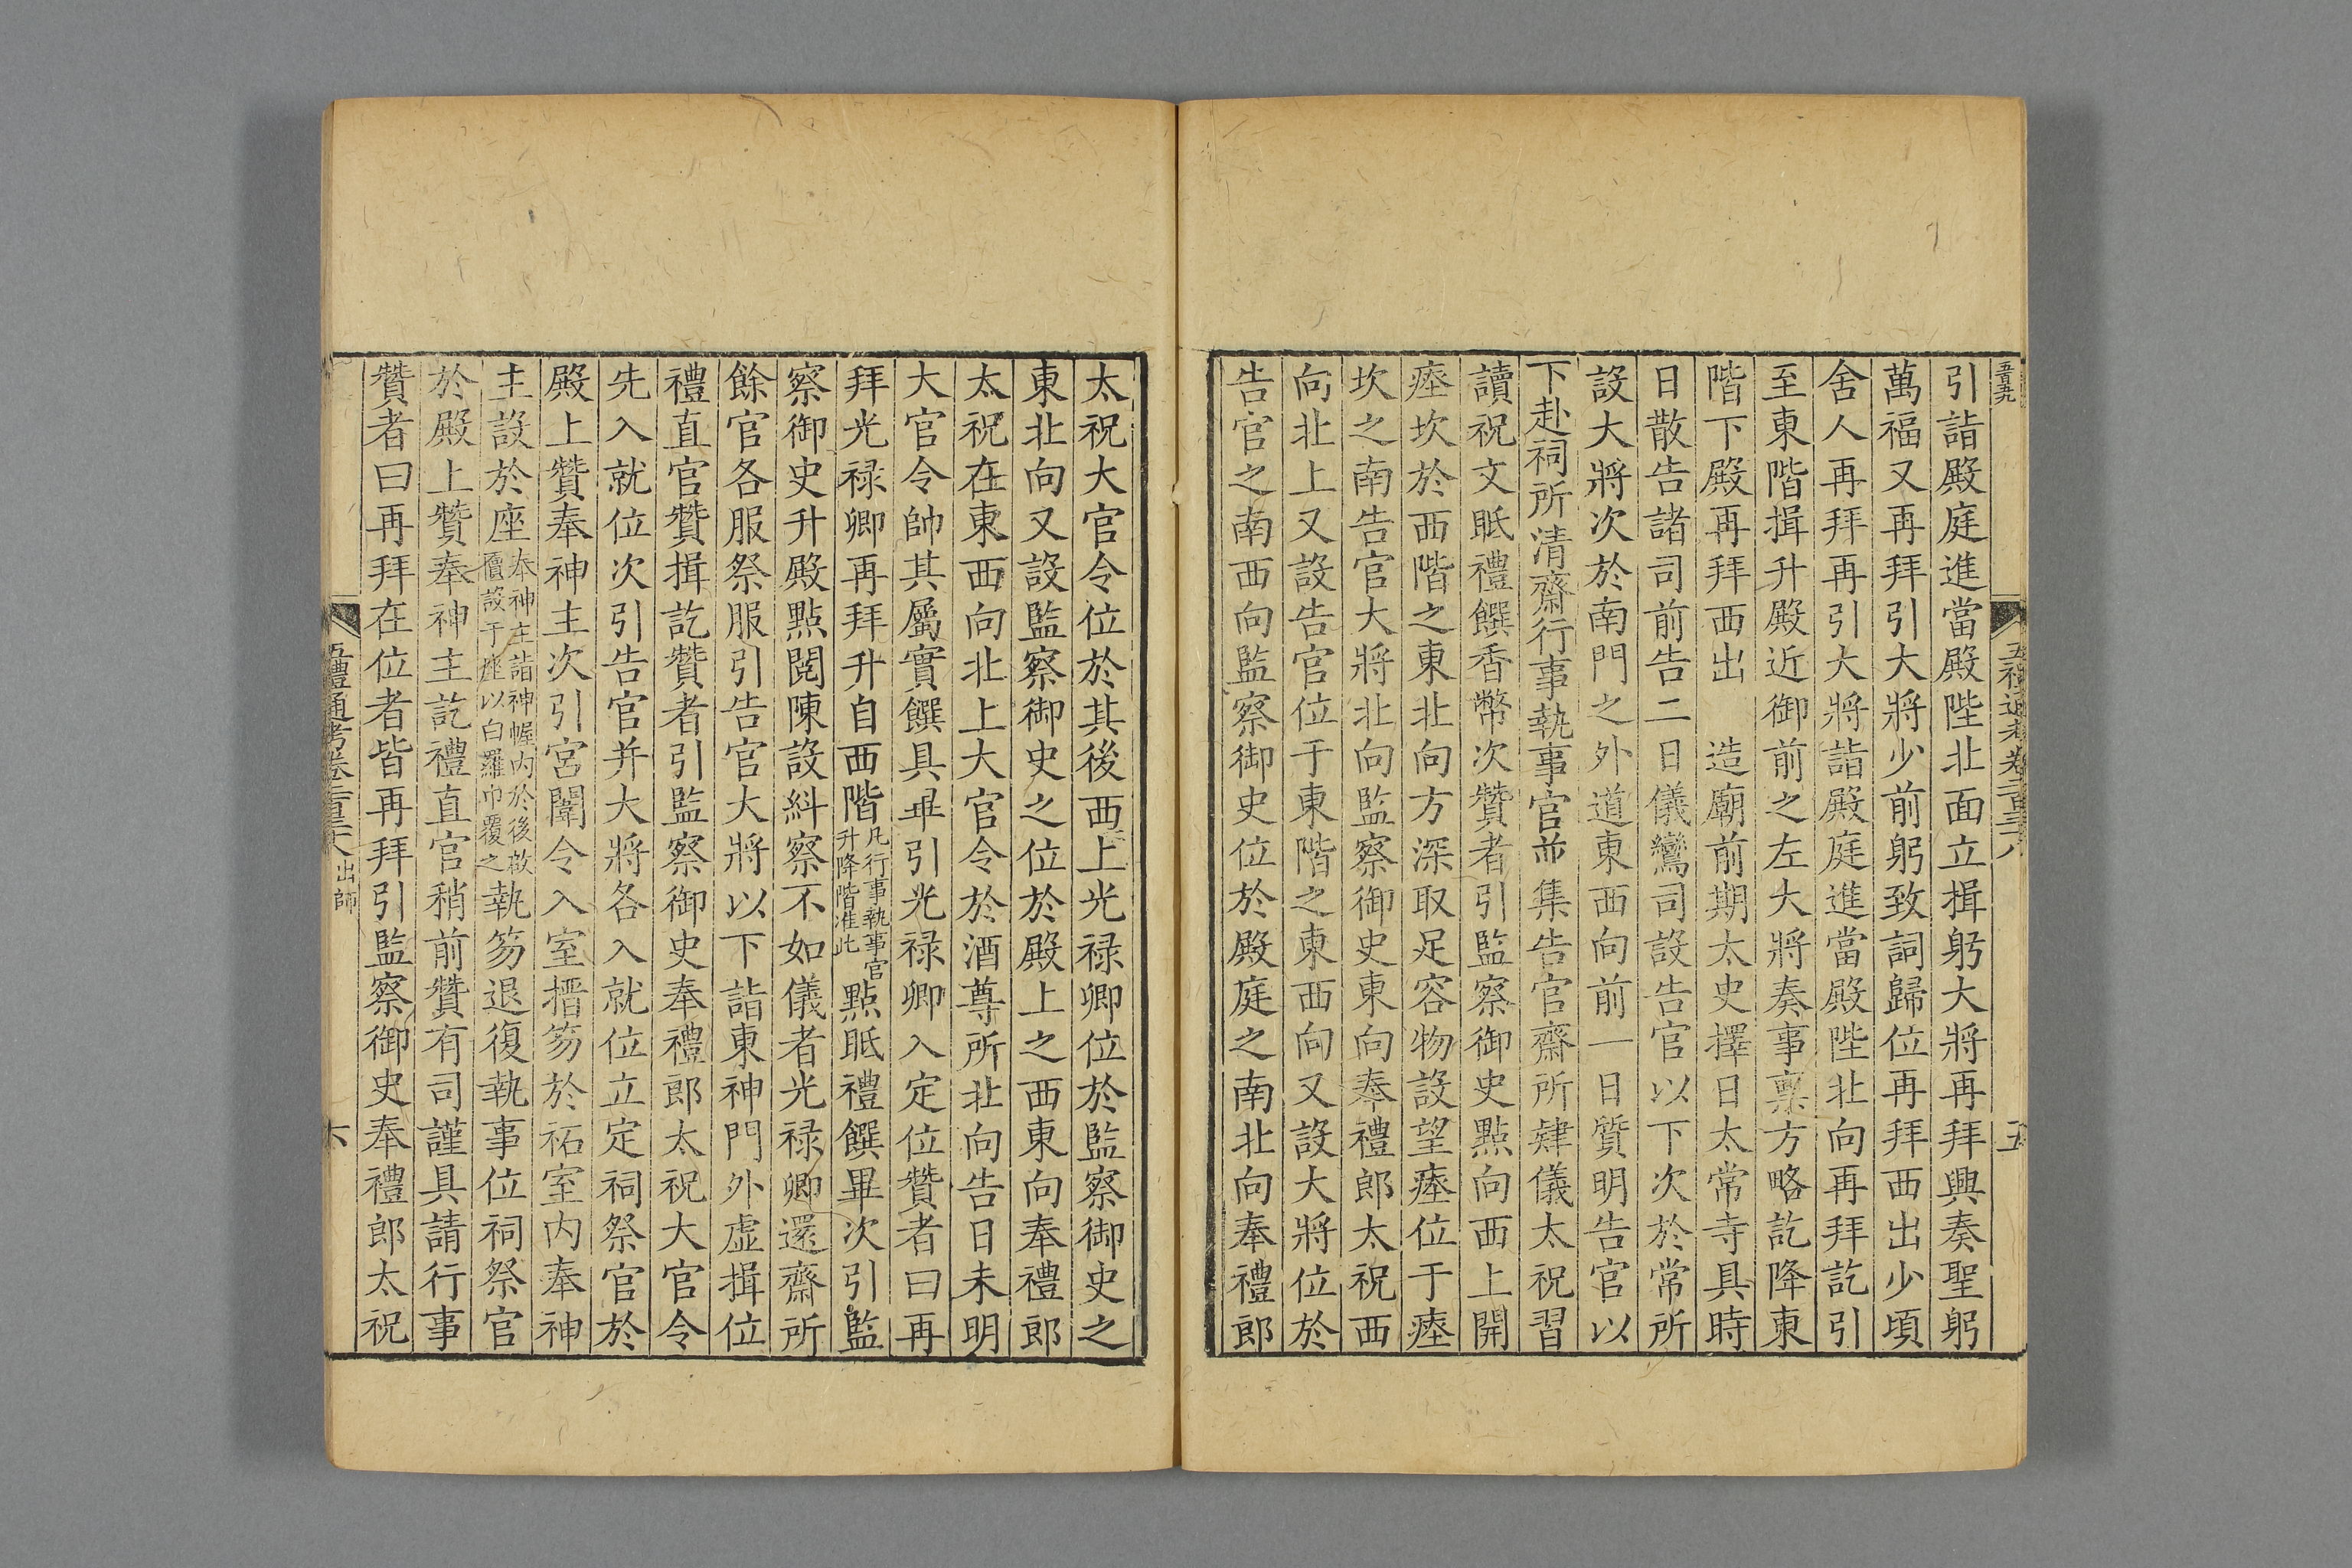 引詣殿庭進當殿陛北面立揖躬大將再拜興奏聖躬
萬福又再拜引大將少前躬致詞歸位再拜西出少頃
舍人再拜再引大將詣殿庭進當殿陛北向再拜訖引
至東階揖升殿近御前之左大將奏事稟方略訖降東
階下殿再拜西出　造廟前期太史擇日太常寺具時
日散告諸司前告二日儀鸞司設告官以下次於常所
設大將次於南門之外道東西向前一日質明告官以
下赴祠所清齋行事執事官並集告官齋所肄儀太祝習
讀祝文眡禮饌香幣次贊者引監察御史點向西上開
瘞坎於西階之東北向方深取足容物設望瘞位于瘞
坎之南告官大將北向監察御史東向奉禮郎太祝西
向北上又設告官位于東階之東西向又設大將位於
告官之南西向監察御史位於殿庭之南北向奉禮郎
太祝大官令位於其後西上光祿卿位於監察御史之
東北向又設監察御史之位於殿上之西東向奉禮郎
太祝在東西向北上大官令於酒尊所北向告日未明
大官令帥其屬實饌具畢引光祿卿入定位贊者曰再
拜光祿卿再拜升自西階凡行事執事官升降階准此點眡禮饌畢次引監
察御史升殿點閱陳設糾察不如儀者光祿卿還齋所
餘官各服祭服引告官大將以下詣東神門外虛揖位
禮直官贊揖訖贊者引監察御史奉禮郎太祝大官令
先入就位次引告官并大將各入就位立定祠祭官於
殿上贊奉神主次引宮闈令入室搢笏於祏室內奉神
主設於座奉神主詣神幄內於後啟匱設于座以白羅巾覆之執笏退復執事位祠祭官
於殿上贊奉神主訖禮直官稍前贊有司謹具請行事
贊者曰再拜在位者皆再拜引監察御史奉禮郎太祝
五禮通考卷二百三十六 出師
六